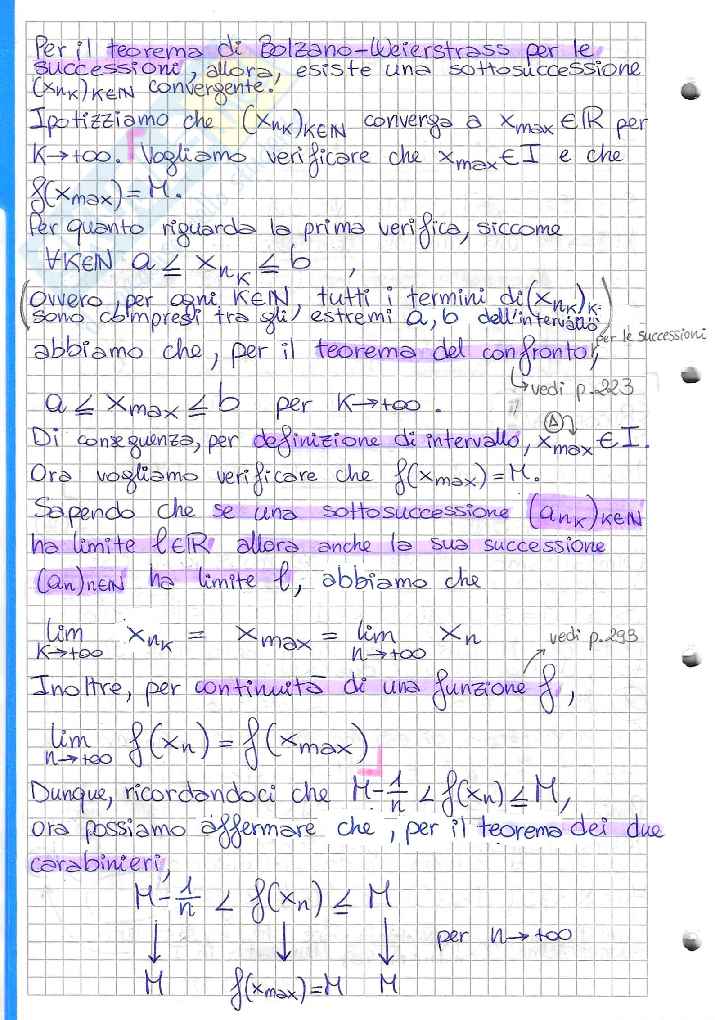 Per il teorema di Bolzano-Weierstrass per le
successioni, allora, esiste una sottosuccessione
(xnₖ)ₖ∈ℕ convergente.
Ipotizziamo che (xnₖ)ₖ∈ℕ converga a xmax ∈ ℝ per
K→+∞. Vogliamo verificare che xmax ∈ I e che
f(xmax) = M.
Per quanto riguarda la prima verifica, siccome
∀K∈ℕ a ≤ xnₖ ≤ b ,
(ovvero, per ogni K∈ℕ, tutti i termini di (xnₖ)ₖ
sono compresi tra gli estremi a, b dell'intervallo)
per le successioni
abbiamo che, per il teorema del confronto,
↳ vedi p. 223
a ≤ xmax ≤ b per K→+∞.
Di conseguenza, per definizione di intervallo, xmax ∈ I.
Ora vogliamo verificare che f(xmax) = M.
Sapendo che se una sottosuccessione (anₖ)ₖ∈ℕ
ha limite ℓ∈ℝ allora anche la sua successione
(an)n∈ℕ ha limite ℓ, abbiamo che
lim K→+∞ xnₖ = xmax = lim n→+∞ xn
vedi p. 293
Inoltre, per continuità di una funzione f,
lim n→+∞ f(xn) = f(xmax)
Dunque, ricordandoci che M - 1/n < f(xn) ≤ M,
ora possiamo affermare che, per il teorema dei due
carabinieri,
M - 1/n < f(xn) ≤ M
↓ ↓ ↓ per n→+∞
M f(xmax)=M M